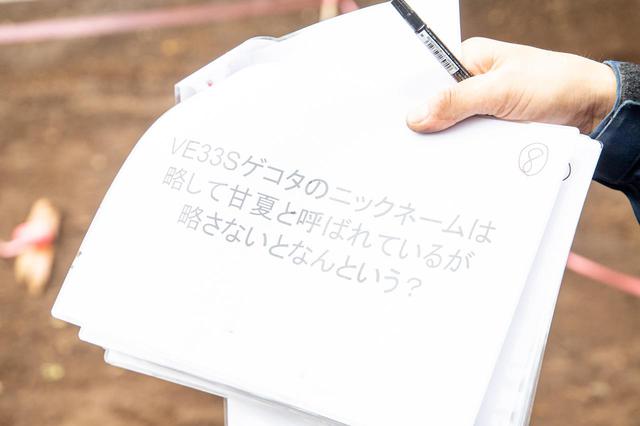 ⑧
VE33Sゲコタのニックネームは
略して甘夏と呼ばれているが
略さないとなんという?